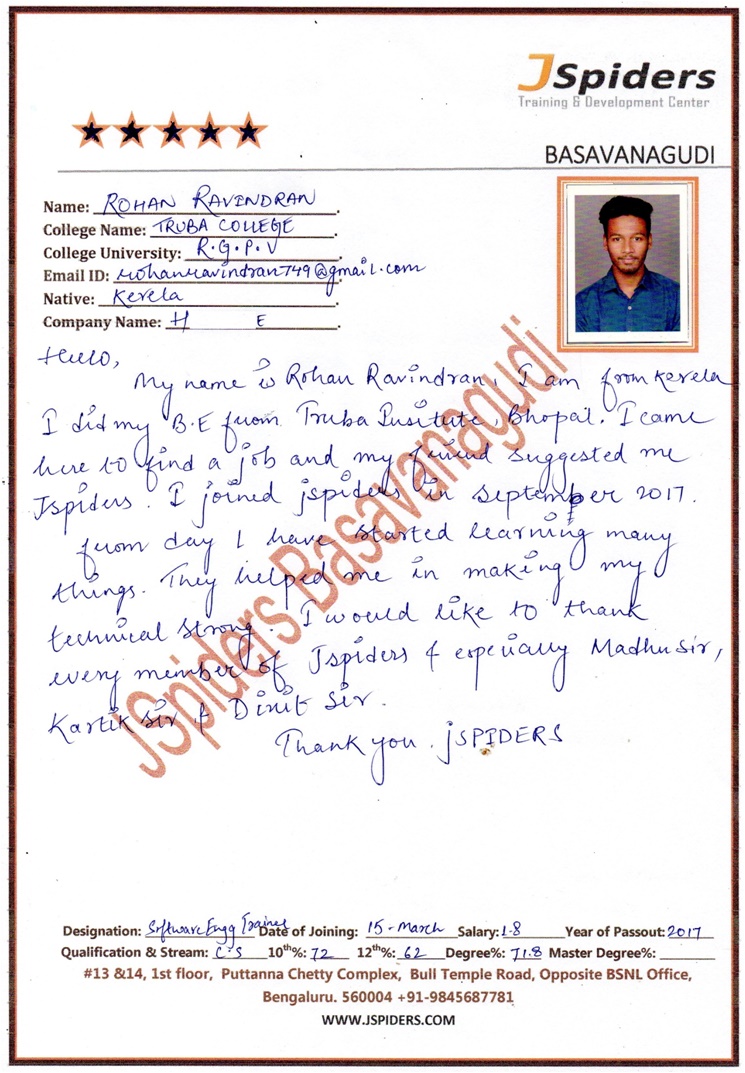 JSpiders
Training & Development Center
BASAVANAGUDI
Name: ROHAN RAVINDRAN
College Name: TRUBA COLLEGE
College University: R.G.P.V
Email ID: rohanravindran749@gmail.com
Native: Kerela
Company Name: H E
Hello,
My name is Rohan Ravindran, I am from Kerela
I did my B.E from Truba Insitute, Bhopal. I came
here to find a job and my friend suggested me
Jspiders. I joined jspiders in september 2017.
from day 1 have started learning many
things. They helped me in making my
technical strong. I would like to thank
every member of Jspiders & especially Madhu sir,
Kartik sir & Dixit sir.
Thank you. jSPIDERS
JSpiders Basavanagudi
Designation: Software Engg Trainee Date of Joining: 15-March Salary: 1.8 Year of Passout: 2017
Qualification & Stream: C.S 10th%: 72 12th%: 62 Degree%: 71.8 Master Degree%:
#13 &14, 1st floor, Puttanna Chetty Complex, Bull Temple Road, Opposite BSNL Office,
Bengaluru. 560004 +91-9845687781
WWW.JSPIDERS.COM